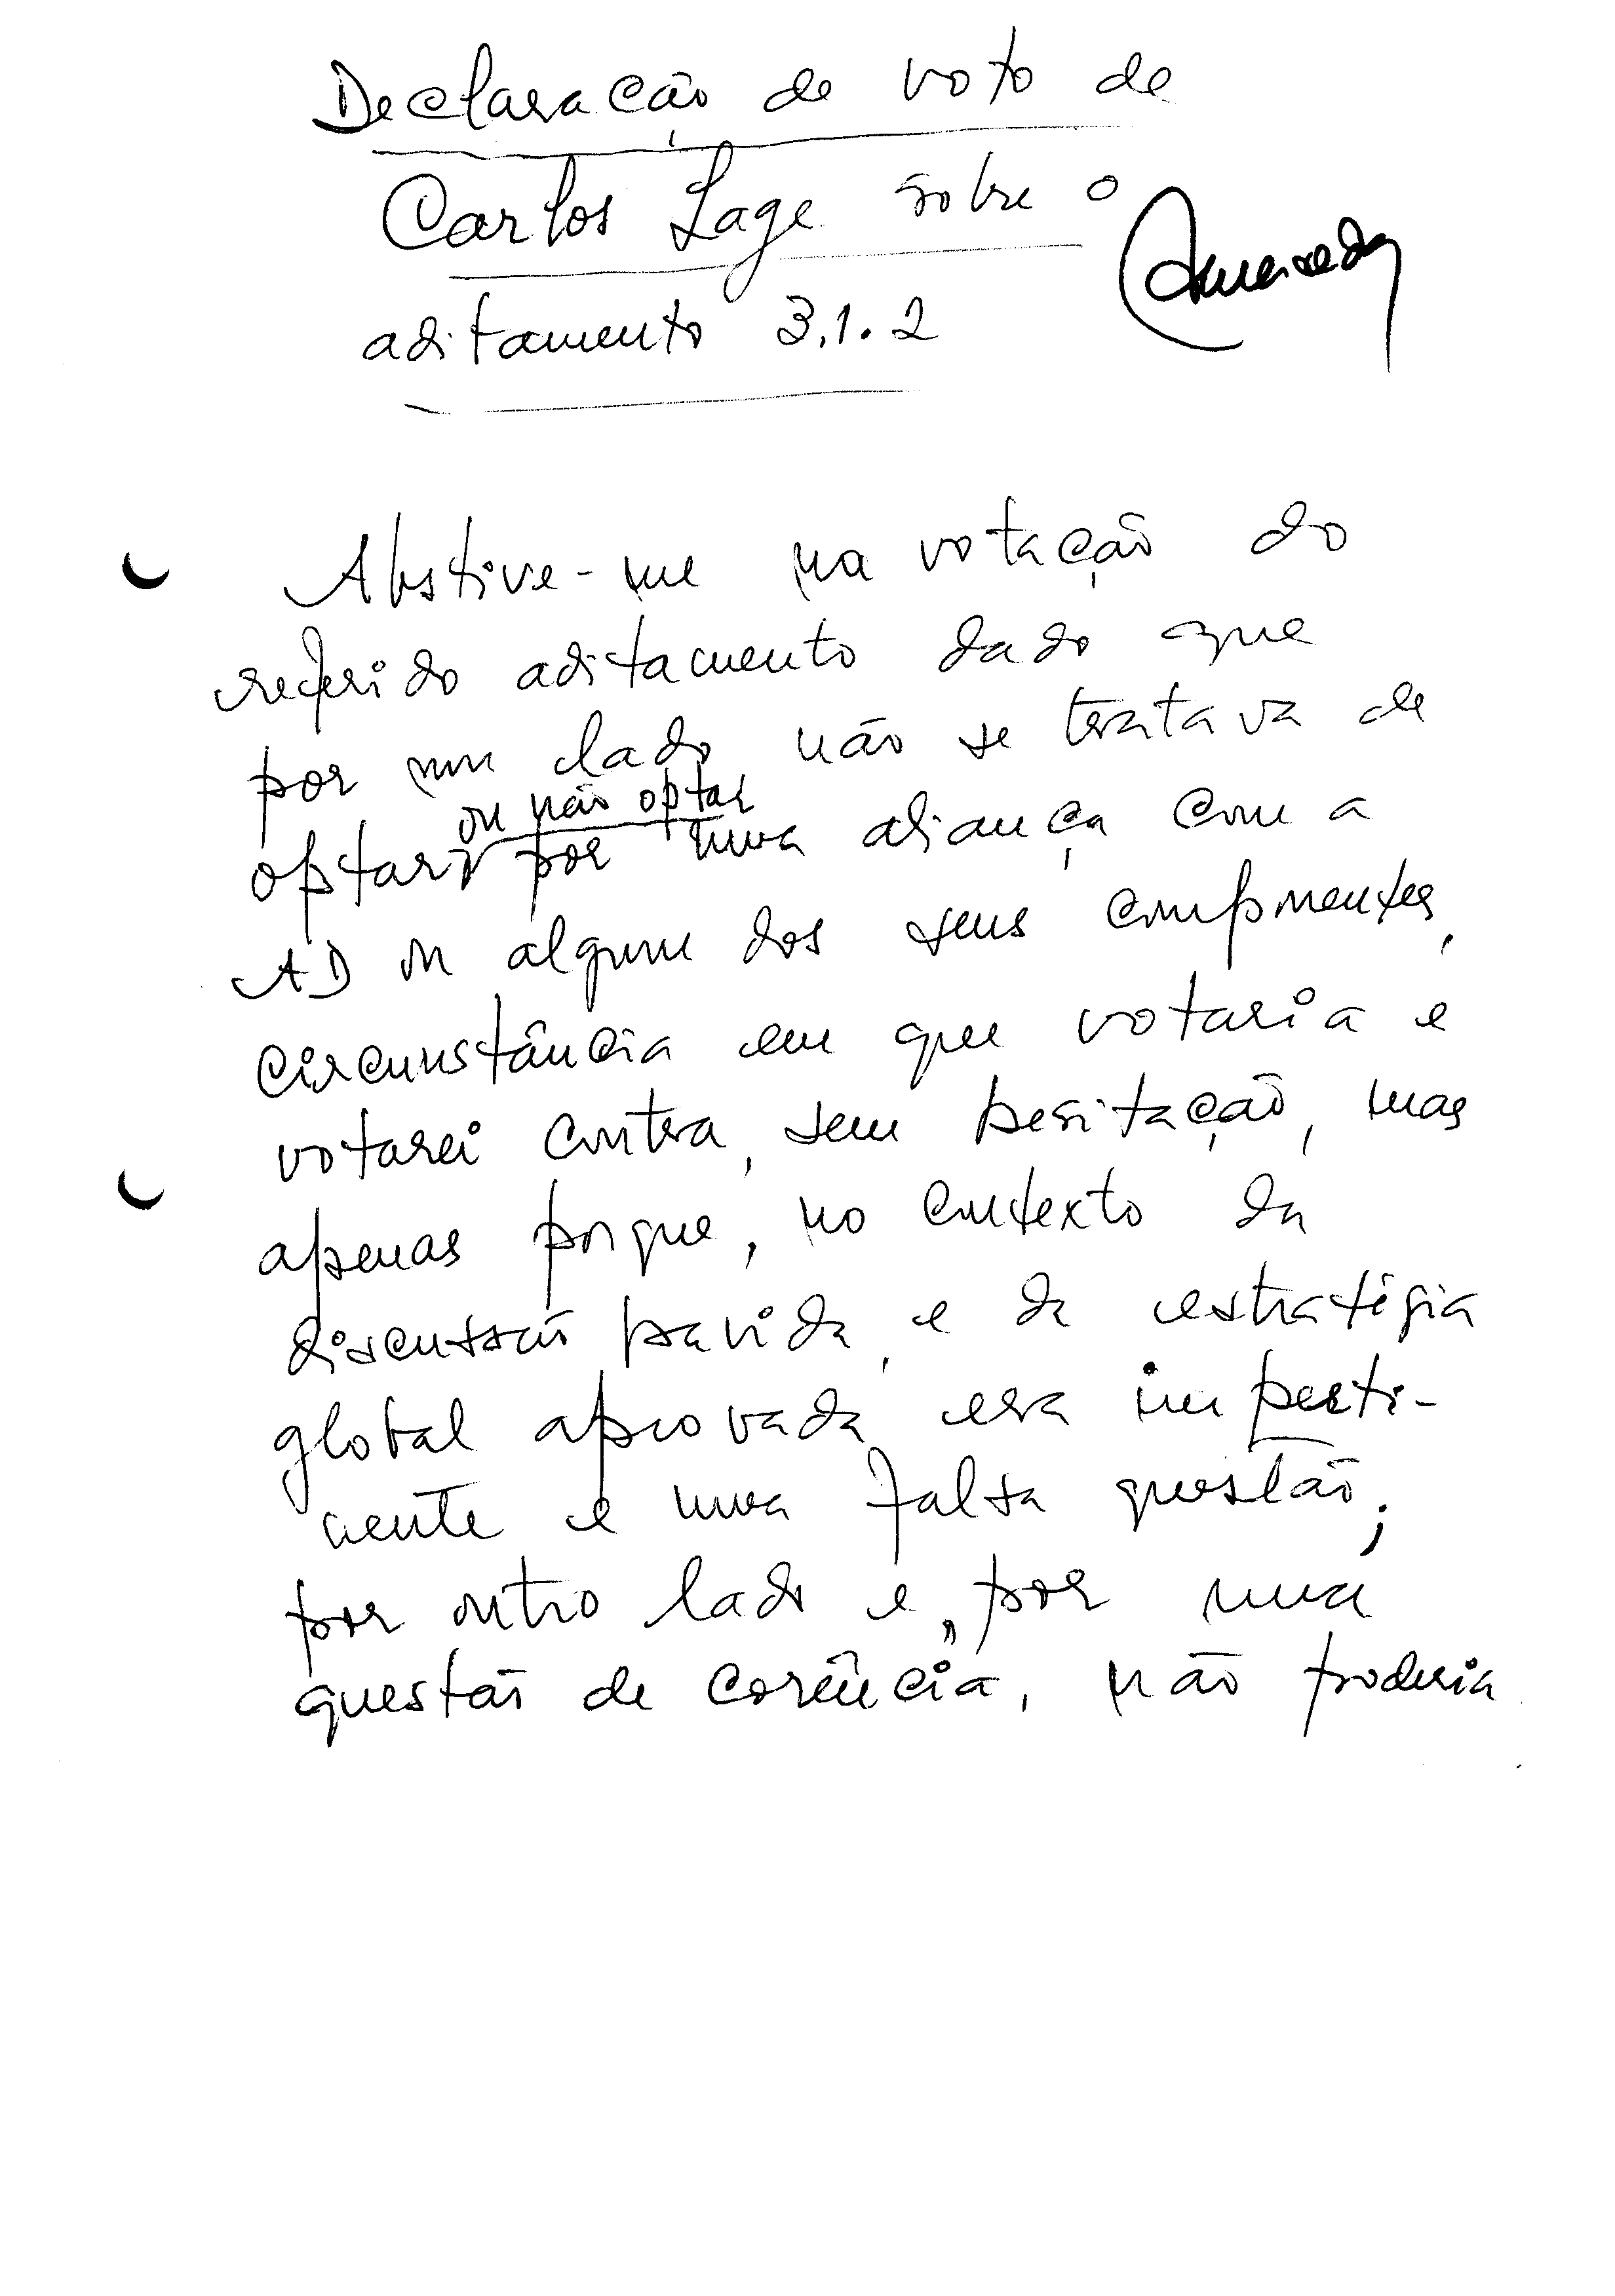 Declaração de voto de
Carlos Lage sobre o
aditamento 3.1.2
Abstive-me na votação do
referido aditamento dado que
por um lado não se tratava de
ou não optar
optar por uma aliança com a
AD ou algum dos seus componentes,
circunstância em que votaria e
votarei contra, sem hesitação, mas
apenas porque, no contexto da
discussão havida, e da estratégia
global aprovada era imperti-
nente e uma falsa questão;
por outro lado e, por uma
questão de coerência, não poderia